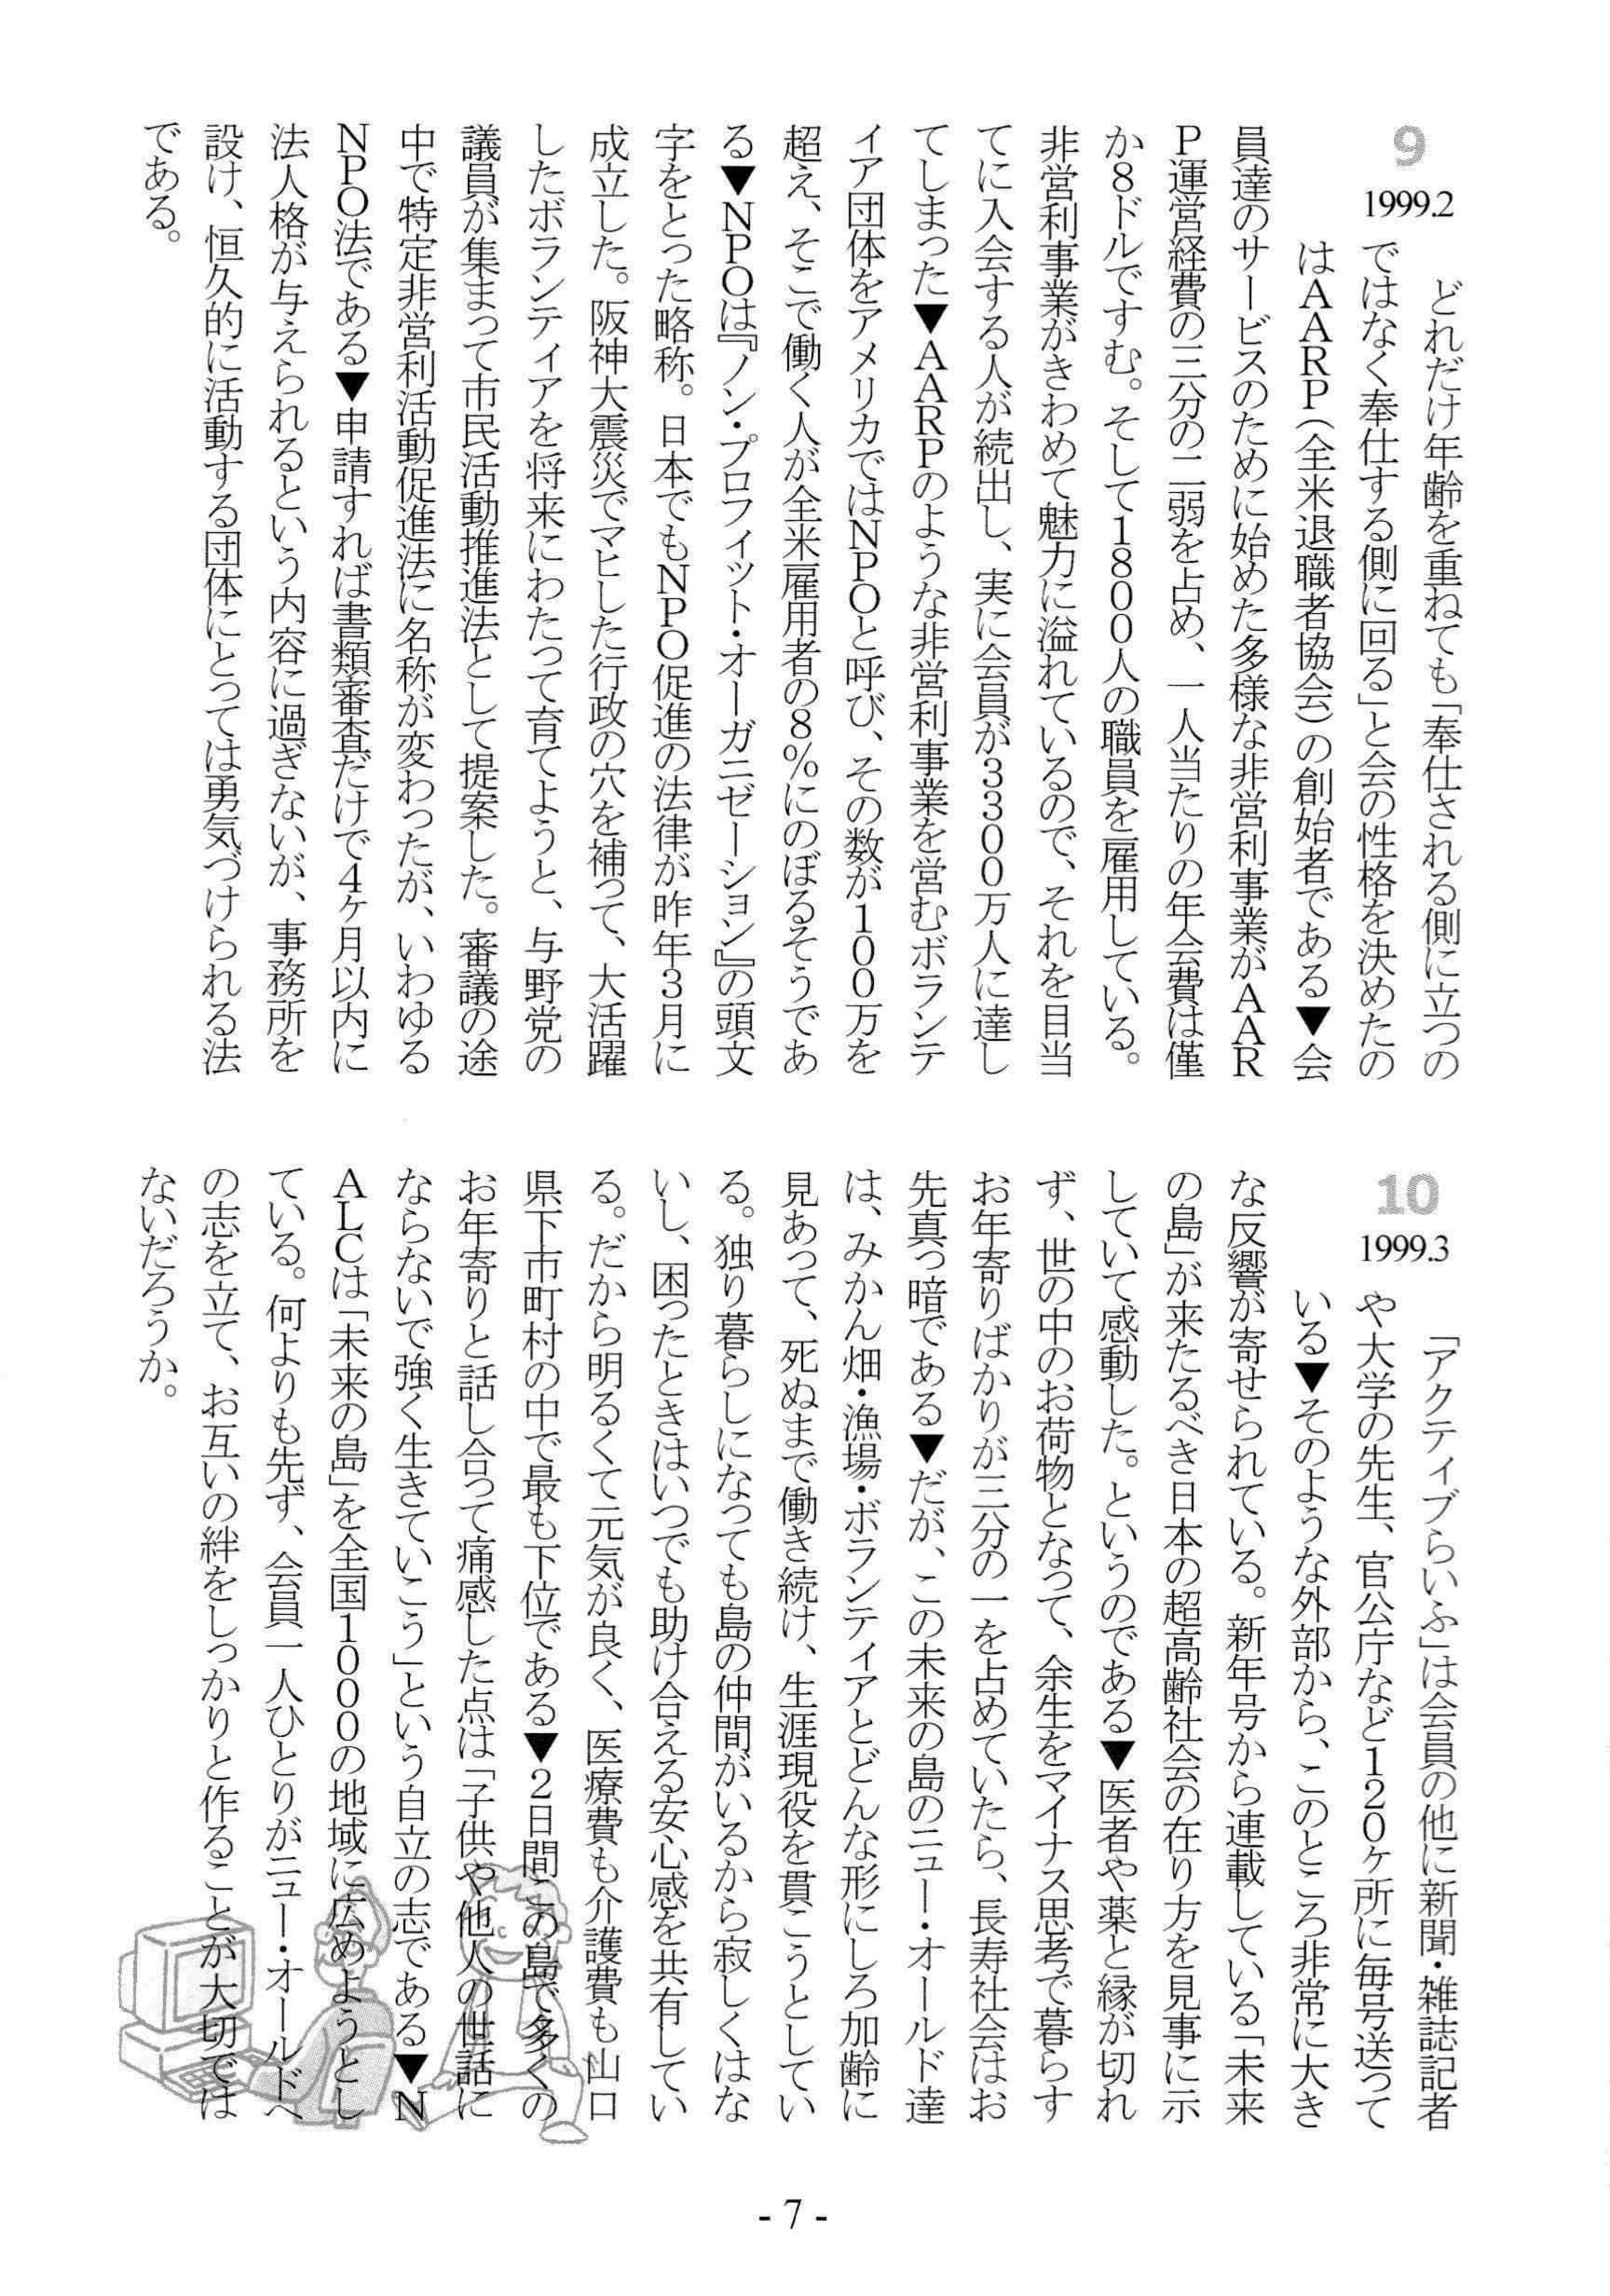 9
1999.2
どれだけ年齢を重ねても「奉仕される側に立つの
ではなく奉仕する側に回る」と会の性格を決めたの
はAARP（全米退職者協会）の創始者である▼会
員達のサービスのために始めた多様な非営利事業がAAR
P運営経費の三分の二弱を占め、一人当たりの年会費は僅
か8ドルですむ。そして1800人の職員を雇用している。
非営利事業がきわめて魅力に溢れているので、それを目当
てに入会する人が続出し、実に会員が3300万人に達し
てしまった▼AARPのような非営利事業を営むボランテ
ィア団体をアメリカではNPOと呼び、その数が100万を
超え、そこで働く人が全米雇用者の8%にのぼるそうであ
る▼NPOは『ノン・プロフィット・オーガニゼーション』の頭文
字をとった略称。日本でもNPO促進の法律が昨年3月に
成立した。阪神大震災でマヒした行政の穴を補って、大活躍
したボランティアを将来にわたって育てようと、与野党の
議員が集まって市民活動推進法として提案した。審議の途
中で特定非営利活動促進法に名称が変わったが、いわゆる
NPO法である▼申請すれば書類審査だけで4ヶ月以内に
法人格が与えられるという内容に過ぎないが、事務所を
設け、恒久的に活動する団体にとっては勇気づけられる法
である。
10
1999.3
「アクティブらいふ」は会員の他に新聞・雑誌記者
や大学の先生、官公庁など120ヶ所に毎号送って
いる▼そのような外部から、このところ非常に大き
な反響が寄せられている。新年号から連載している「未来
の島」が来たるべき日本の超高齢社会の在り方を見事に示
していて感動した。というのである▼医者や薬と縁が切れ
ず、世の中のお荷物となって、余生をマイナス思考で暮らす
お年寄りばかりが三分の一を占めていたら、長寿社会はお
先真っ暗である▼だが、この未来の島のニュー・オールド達
は、みかん畑・漁場・ボランティアとどんな形にしろ加齢に
見あって、死ぬまで働き続け、生涯現役を貫こうとしてい
る。独り暮らしになっても島の仲間がいるから寂しくはな
いし、困ったときはいつでも助け合える安心感を共有してい
る。だから明るくて元気が良く、医療費も介護費も山口
県下市町村の中で最も下位である▼2日間この島で多くの
お年寄りと話し合って痛感した点は「子供や他人の世話に
ならないで強く生きていこう」という自立の志である▼N
ALCは「未来の島」を全国1000の地域に広めようとし
ている。何よりも先ず、会員一人ひとりがニュー・オールドへ
の志を立て、お互いの絆をしっかりと作ることが大切では
ないだろうか。
- 7 -